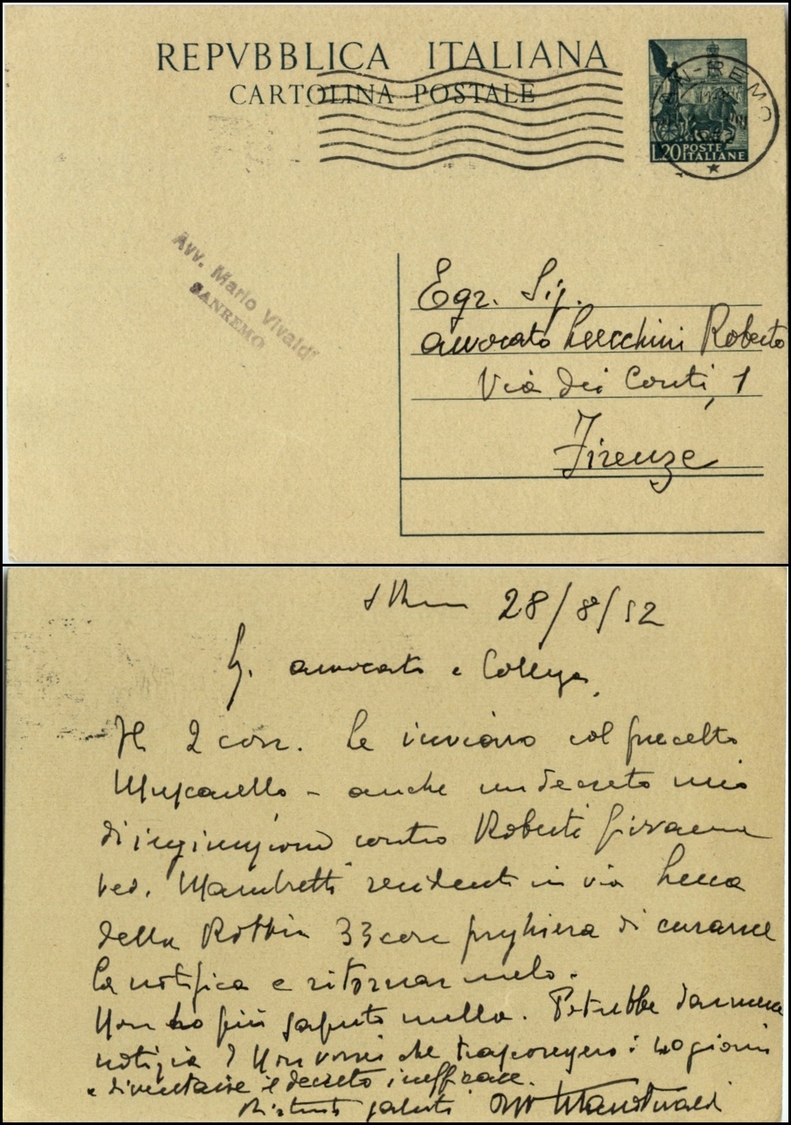 REPVBBLICA ITALIANA
CARTOLINA POSTALE
SAN-REMO
L.20 POSTE ITALIANE
Avv. Mario Vivaldi
SANREMO
Egr. Sig.
avvocato Lucchini Roberto
Via dei Conti, 1
Firenze
28/8/52
avvocato e Collega,
Il 2 corr. Le inviavo col precetto
Muscarello - anche un decreto mio
di ingiunzione contro Roberti Giovanna
ved. Mambretti residente in via Lucca
della Robbia 33 con preghiera di curarne
la notifica e ritornarmelo.
Non ho più saputo nulla. Potrebbe darmene
notizia? Non vorrei che trascorressero i giorni
e diventasse il decreto inefficace.
Distinti saluti